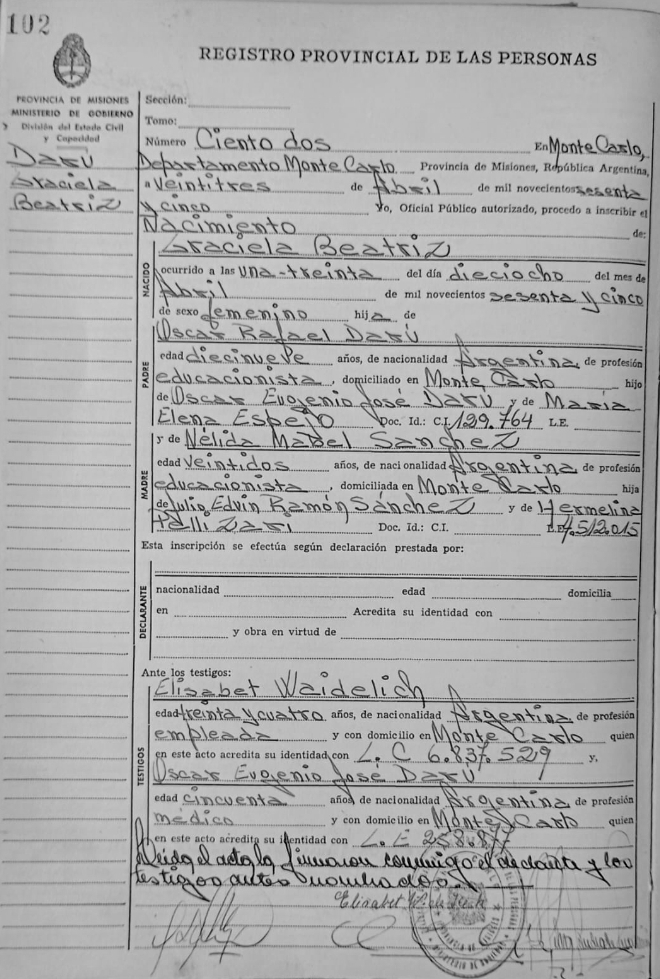 102
REGISTRO PROVINCIAL DE LAS PERSONAS
PROVINCIA DE MISIONES
MINISTERIO DE GOBIERNO
División del Estado Civil
y Capacidad
DARÚ
Graciela
Beatriz
Sección:
Tomo:
Número Ciento dos En Monte Carlo,
Departamento Monte Carlo Provincia de Misiones, República Argentina,
a Veintitres de Abril de mil novecientos sesenta
y cinco Yo, Oficial Público autorizado, procedo a inscribir el
Nacimiento de:
NACIDO
Graciela Beatriz
ocurrido a las una-treinta del día dieciocho del mes de
Abril de mil novecientos sesenta y cinco
de sexo femenino hija de
PADRE
Oscar Rafael Darú
edad diecinueve años, de nacionalidad Argentina, de profesión
educacionista, domiciliado en Monte Carlo hijo
de Oscar Eugenio José Darú y de María
Elena Espejo Doc. Id.: C.I. 129.764 L.E.
MADRE
y de Nélida Mabel Sanchez
edad Veintidos años, de nacionalidad Argentina, de profesión
educacionista, domiciliada en Monte Carlo hija
de Julio Edvin Ramón Sánchez y de Hermelina
Doc. Id.: C.I. 4.512.015
Esta inscripción se efectúa según declaración prestada por:
DECLARANTE
nacionalidad edad domicilia
en Acredita su identidad con
y obra en virtud de
Ante los testigos:
TESTIGOS
Elisabet Waidelich
edad treinta y cuatro años, de nacionalidad Argentina, de profesión
empleada y con domicilio en Monte Carlo quien
en este acto acredita su identidad con L. C 6.837.529 y,
Oscar Eugenio José Darú
edad cincuenta años, de nacionalidad Argentina de profesión
médico y con domicilio en Monte Carlo quien
en este acto acredita su identidad con L. E
Leida el acta la firmaron conmigo el declarante y los
testigos antes nombrados.
Elisabet